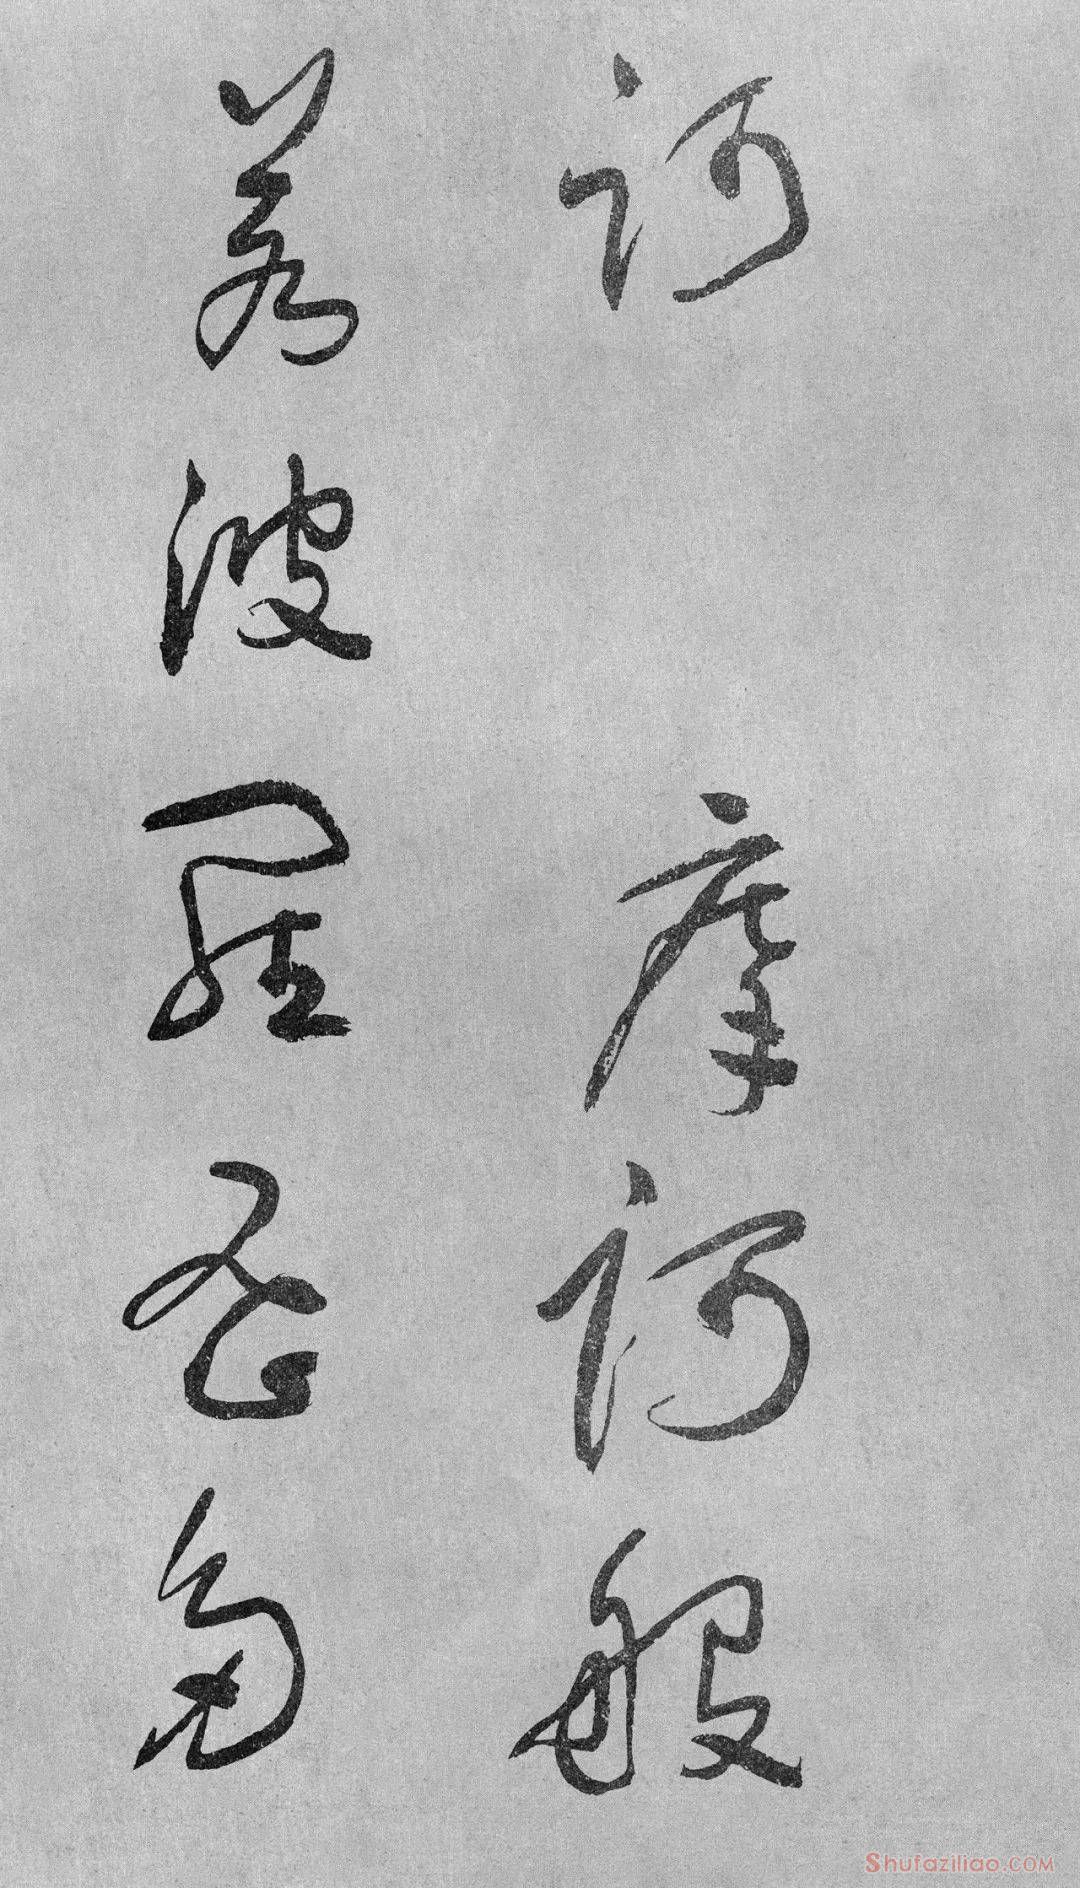 訶 摩訶般
若波羅蜜多
Shufaziliao.COM